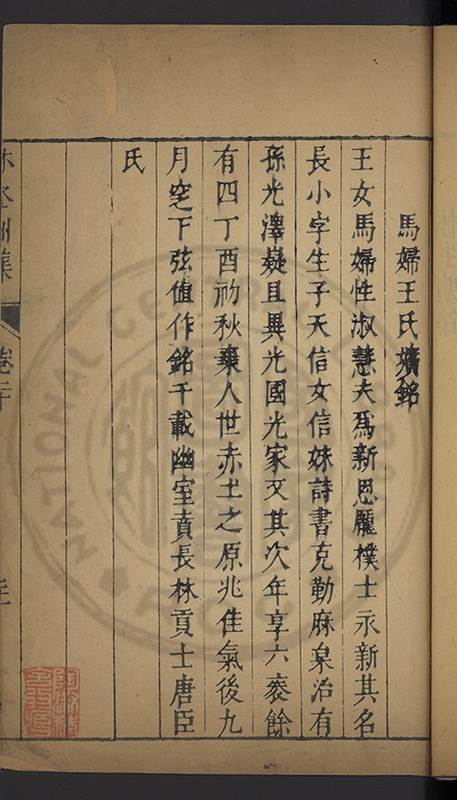 馬婦王氏壙銘
王女馬婦性淑慧夫爲新恩龎樸士永新其名
長小字生子天信女信妹詩書克勤麻枲治有
孫光澤嶷且異光國光家又其次年享六袠餘
有四丁酉初秋棄人世赤土之原兆佳氣後九
月窆下弦值作銘千載幽室賁長林貢士唐臣
氏
集
卷二十